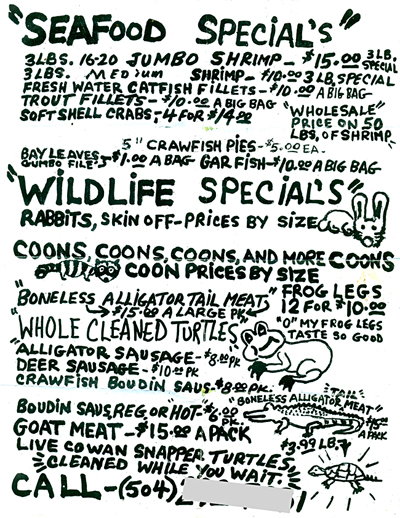 "SEAFOOD SPECIAL'S"
3LBS. 16-20 JUMBO SHRIMP - $15.00 3LB. SPECIAL
3LBS. MEDIUM SHRIMP - $10.00 3LB. SPECIAL
FRESH WATER CATFISH FILLETS - $10.00 A BIG BAG
TROUT FILLETS - $10.00 A BIG BAG
SOFT SHELL CRABS - 4 FOR $14.00
"WHOLESALE"
PRICE ON 50
LBS. OF SHRIMP
5" CRAWFISH PIES - $5.00 EA.
BAY LEAVES
GUMBO FILE'S - $1.00 A BAG GAR FISH - $10.00 A BIG BAG
"WILDLIFE SPECIAL'S"
RABBITS, SKIN OFF - PRICES BY SIZE
COONS, COONS, COONS, AND MORE COONS
COON PRICES BY SIZE
"BONELESS ALLIGATOR TAIL MEAT"
$15.00 A LARGE PK.
FROG LEGS
12 FOR $10.00
"O" MY FROG LEGS
TASTE SO GOOD
"WHOLE CLEANED TURTLES"
ALLIGATOR SAUSAGE - $8.00 PK
DEER SAUSAGE - $10.00 PK
CRAWFISH BOUDIN SAUS. $8.00 PK.
"TAIL"
"BONELESS ALLIGATOR MEAT"
$15.00
A PACK
BOUDIN SAUS, REG. OR "HOT" - $6.00 PK
GOAT MEAT - $15.00 A PACK
$3.99 LB.
LIVE COWAN SNAPPER TURTLES,
CLEANED WHILE YOU WAIT.
CALL - (504)